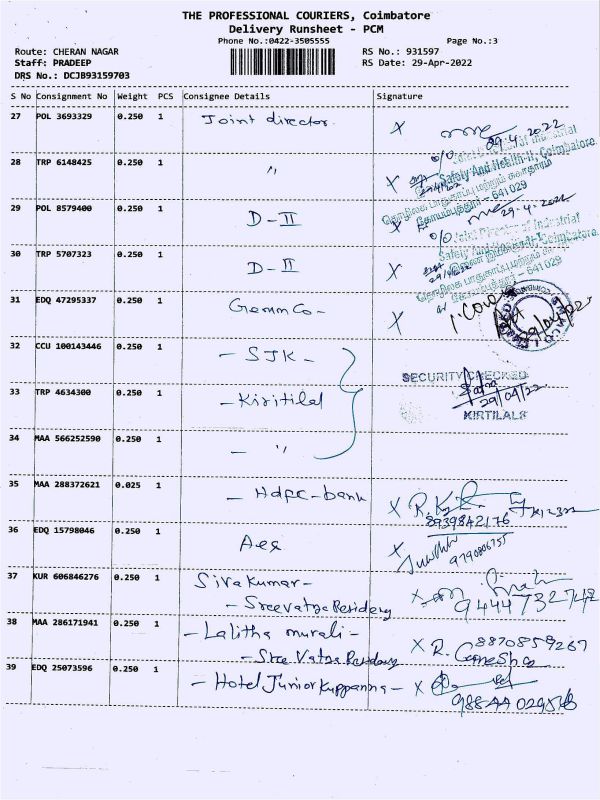 THE PROFESSIONAL COURIERS, Coimbatore
Delivery Runsheet - PCM
Phone No.:0422-3505555 Page No.:3
Route: CHERAN NAGAR RS No.: 931597
Staff: PRADEEP RS Date: 29-Apr-2022
DRS No.: DCJB93159703
S No Consignment No Weight PCS Consignee Details Signature
27 POL 3693329 0.250 1 Joint director X 29.4.2022
28 TRP 6148425 0.250 1 " X
Safety And Health-II, Coimbatore.
தொழிலக பாதுகாப்பு மற்றும் சுகாதாரம்
கோயம்புத்தூர் - 641 029
29 POL 8579400 0.250 1 D-II X 29.4.2022
Joint Director of Industrial
30 TRP 5707323 0.250 1 D-II X
Safety And Health-II, Coimbatore.
31 EDQ 47295337 0.250 1 X
32 CCU 100143446 0.250 1 - SJK -
SECURITY CHECKED
33 TRP 4634300 0.250 1 - Kiritilal
29/04/22
KIRTILALS
34 MAA 566252590 0.250 1 - "
35 MAA 288372621 0.025 1 - Hdfc-bank X
8939842176
36 EDQ 15798046 0.250 1 X
9790806755
37 KUR 606846276 0.250 1 Sivakumar- X
- Sreevatsa Residency 9444732742
38 MAA 286171941 0.250 1 - Lalitha murali - X R. Ganesha 8870859267
- Sree Vatsa Residency
39 EDQ 25073596 0.250 1 - Hotel Junior Kuppanna - X